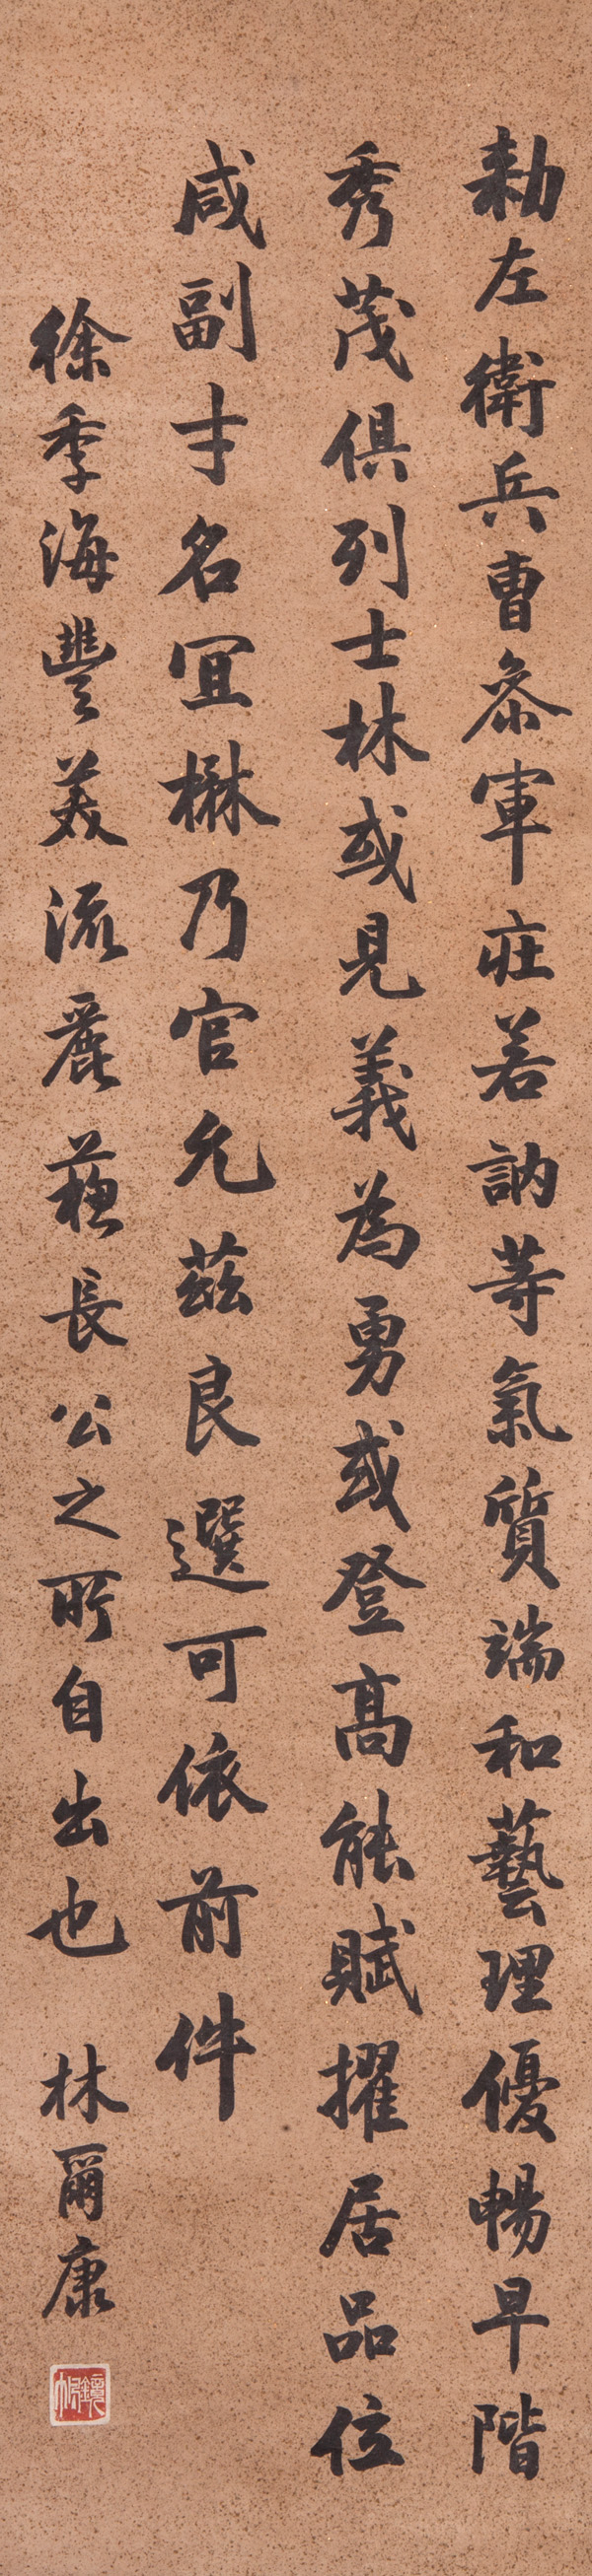 勅左衛兵曹叅軍莊若訥等氣質端和藝理優暢早階
秀茂俱列士林或見義為勇或登高能賦擢居品位
咸副才名宜楙乃官允茲良選可依前件
徐季海豐美流麗蘓長公之所自出也 林爾康
鏡帆